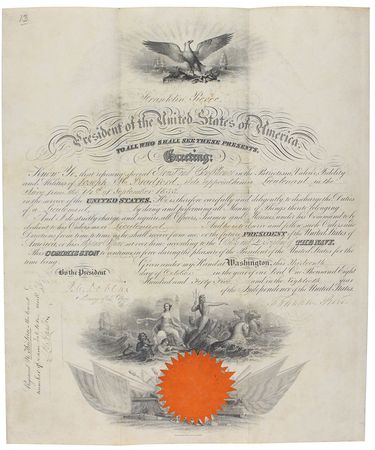 13
Franklin Pierce
President of the United States of America.
TO ALL WHO SHALL SEE THESE PRESENTS,
Greeting:
Know Ye, that reposing special Trust and Confidence in the Patriotism, Valour, Fidelity
and Abilities of Joseph I have appointed him a Lieutenant in the
Navy from the 14th of September 1855
in the service of the UNITED STATES. He is therefore carefully and diligently to discharge the Duties
of a Lieutenant by doing and performing all manner of Things thereto belonging.
And I do strictly charge and require all Officers, Seamen and Marines under his Command to be
obedient to his Orders as a Lieutenant And he is to observe and follow such Orders and
Directions from time to time as he shall receive from me, or the future PRESIDENT of the United States of
America, or his Superior Officer set over him, according to the Rules and Discipline of THE NAVY.
This COMMISSION to continue in force during the pleasure of the President of the United States for the
time being.
Given under my Hand at Washington, this
day of October in the year of our Lord One Thousand Eight
Hundred and Fifty Five and in the Eightieth year
of the Independence of the United States.
By the President
Franklin Pierce